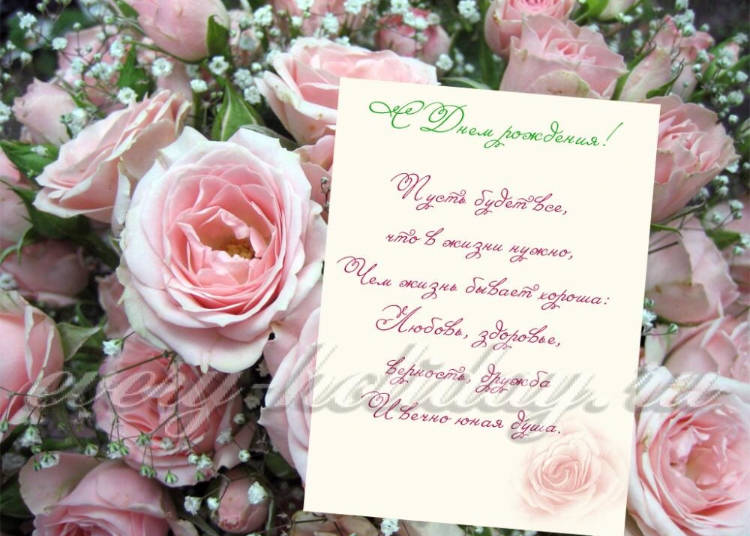 С Днем рождения!
Пусть будет все,
что в жизни нужно,
Чем жизнь бывает хороша:
Любовь, здоровье,
верность, дружба
И вечно юная душа.
every-holiday.ru